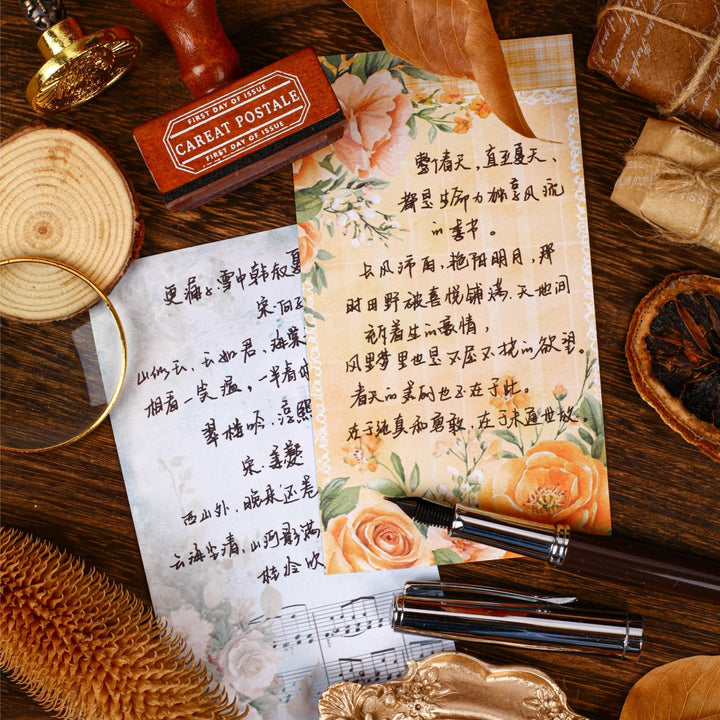 FIRST DAY OF ISSUE
CAREAT POSTALE
FIRST DAY OF ISSUE
整个春天,直至夏天、
都是生命力独享风流
的季节。
长风沛雨,艳阳明月,那
时田野被喜悦铺满,天地间
着生的豪情,
风里梦里也是不屈不挠的欲望。
春天的美丽也正在于此。
在于纯真和勇敢,在于未通世故。
更漏子·雪中韩叔夏
宋·向子
山似玉,玉如君,
相看一笑温,一半
翠楼吟·淳熙
宋·姜夔
西山外,晚来还卷
山河影满
桂冷吹